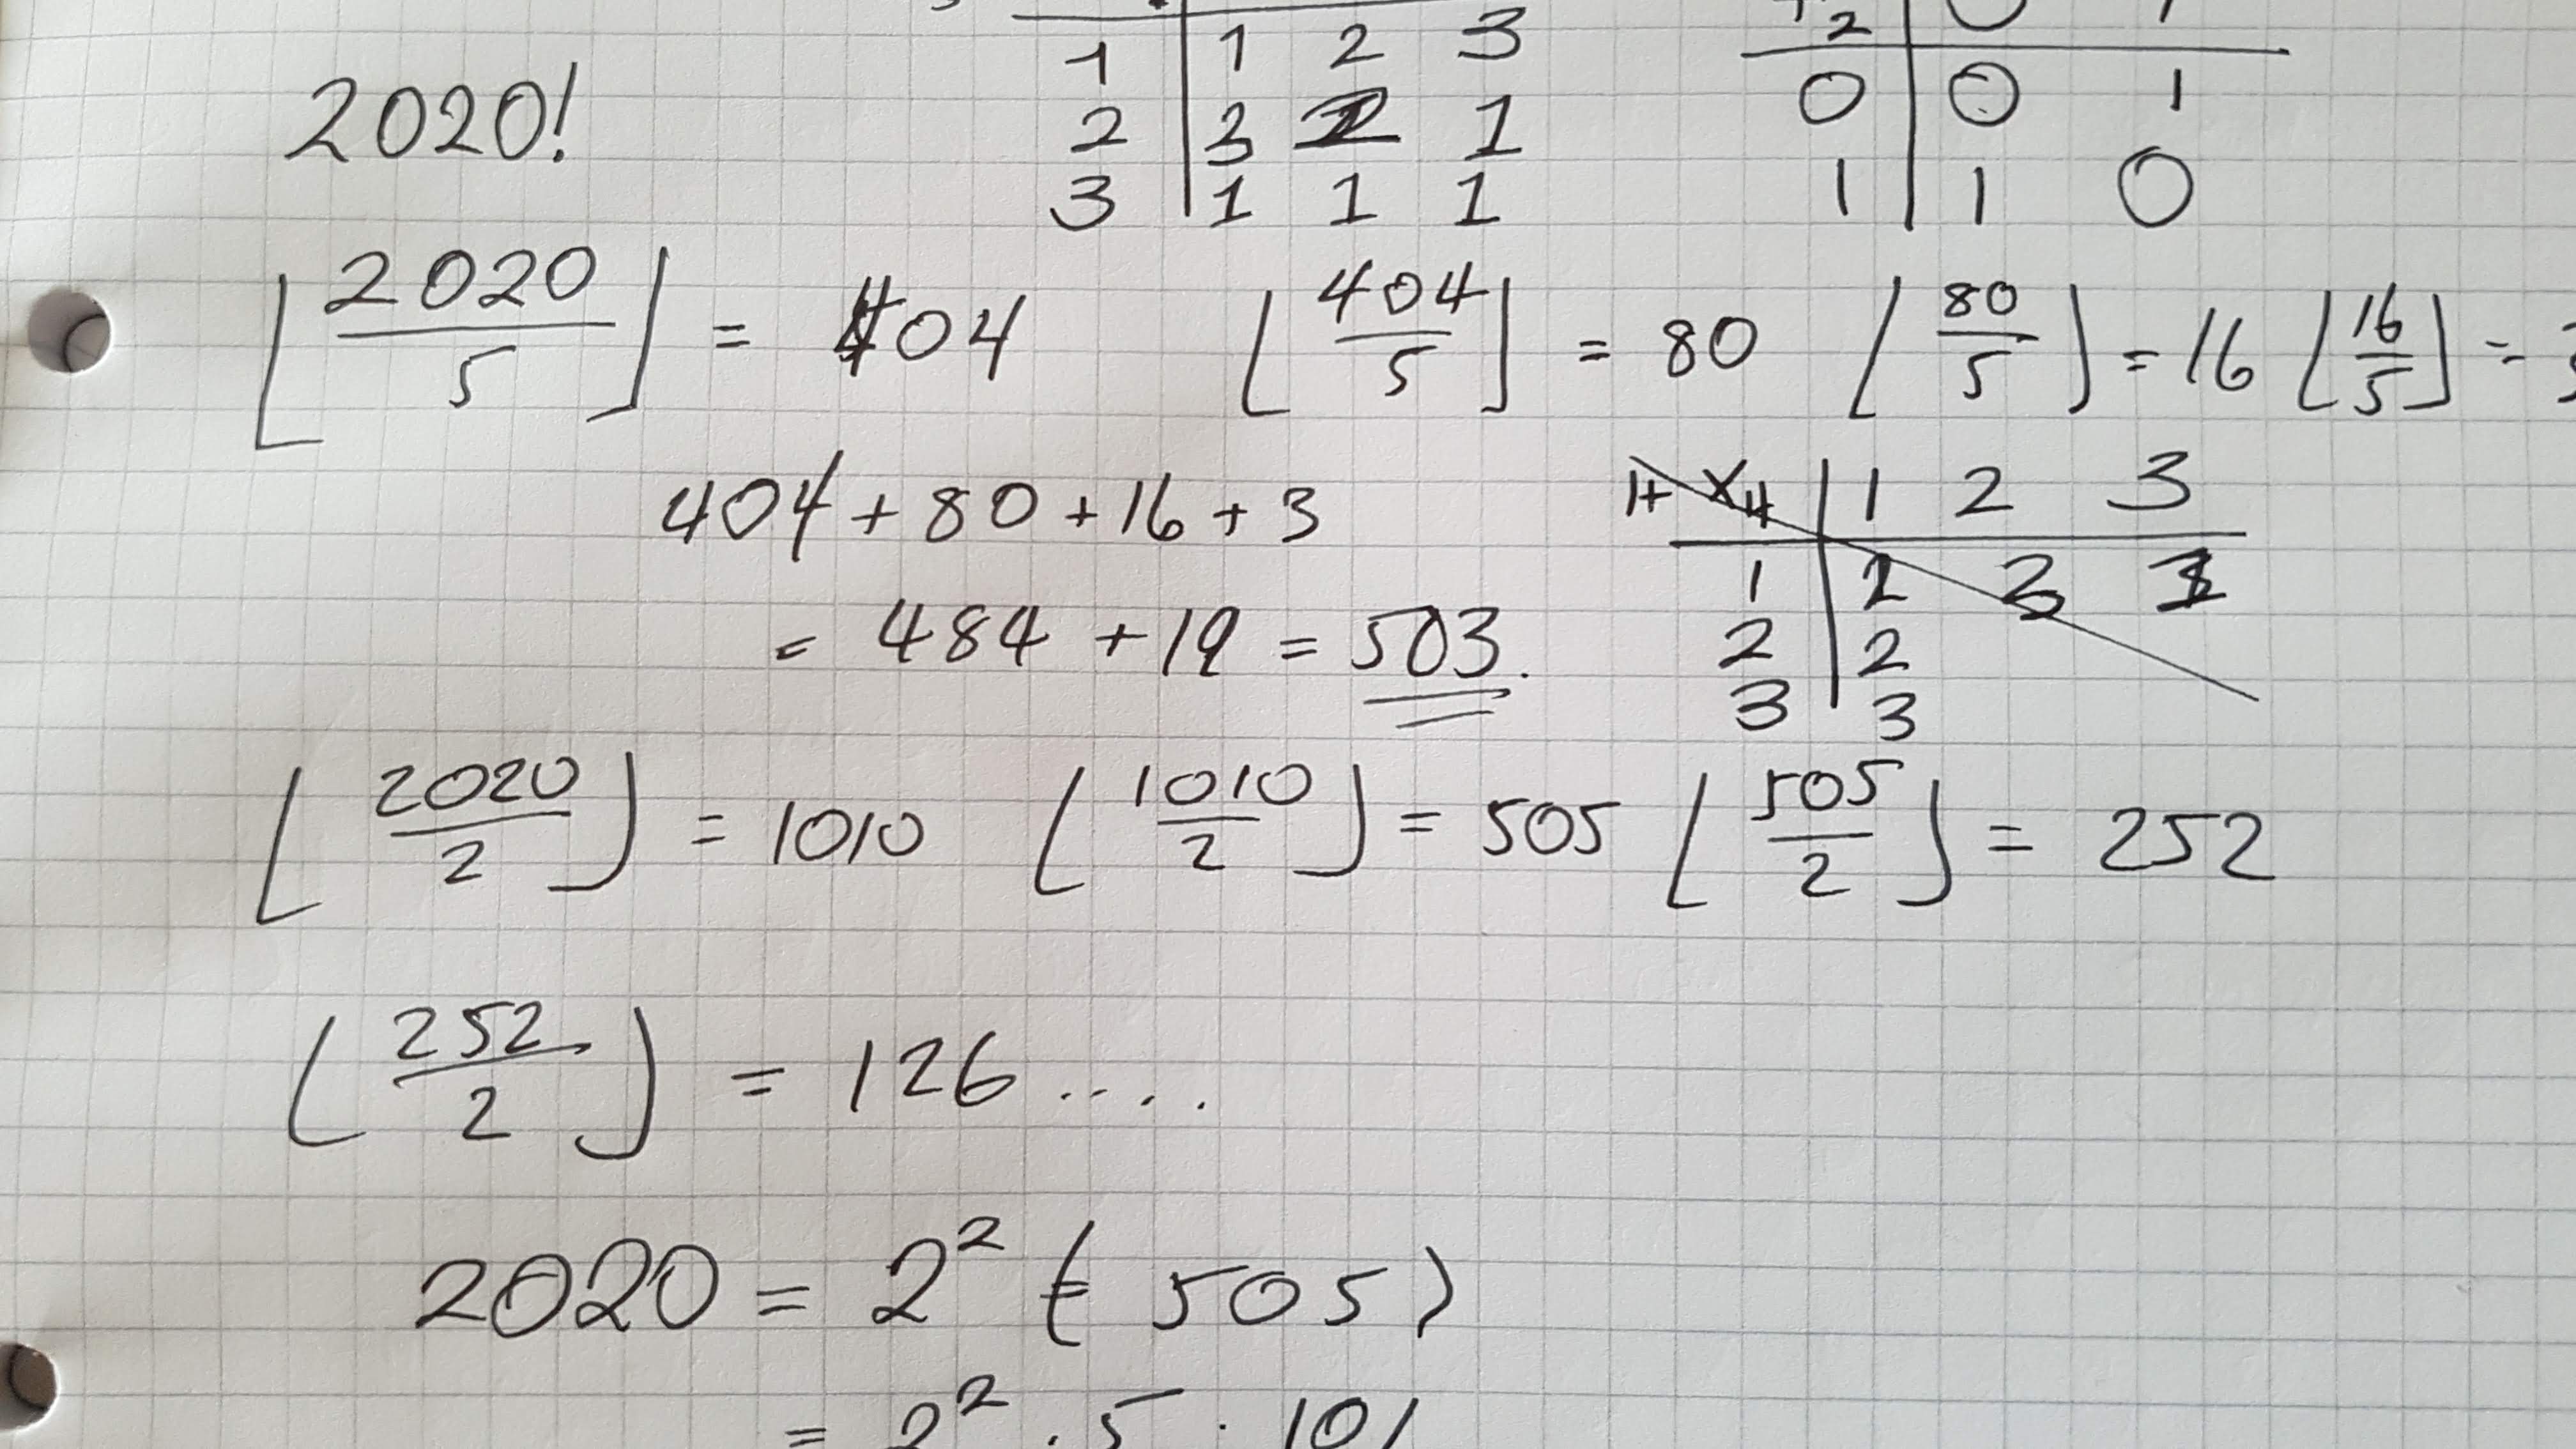 1 2 3
1 1 2 3
2 3 1
3 1 1 1
2
0 0 1
1 1 0
2020!
⌊2020/5⌋ = 404 ⌊404/5⌋ = 80 ⌊80/5⌋ = 16 ⌊16/5⌋ =
404 + 80 + 16 + 3
= 484 + 19 = 503.
1 2 3
1
2 2
3 3
⌊2020/2⌋ = 1010 ⌊1010/2⌋ = 505 ⌊505/2⌋ = 252
⌊252/2⌋ = 126 ....
2020 = 2² (505)
= 2² · 5 · 101